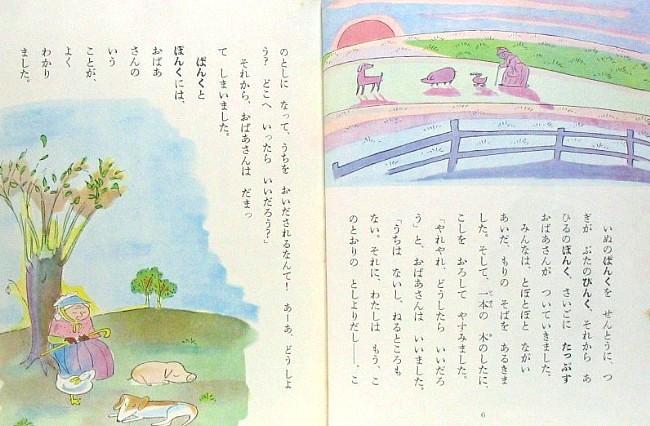 いぬのぱんくを せんとうに、つ
ぎが ぶたのぴんく、それから あ
ひるのぽんく、さいごに たっぷす
おばあさんが ついていきました。
みんなは、とぼとぼと ながい
あいだ、もりの そばを あるきま
した。そして、一本の 木のしたに、
こしを おろして やすみました。
「やれやれ、どうしたら いいだろ
う」と、おばあさんは いいました。
「うちは ないし、ねるところも
ない。それに、わたしは もう、こ
のとおりの としよりだし——。こ
6
のとしに なって、うちを おいだされるなんて！ あーあ、どうしよ
う？ どこへ いったら いいだろう？」
それから、おばあさんは だまっ
て しまいました。
ぱんくと
ぽんくには、
おばあ
さんの
いう
ことが、
よく
わかり
ました。